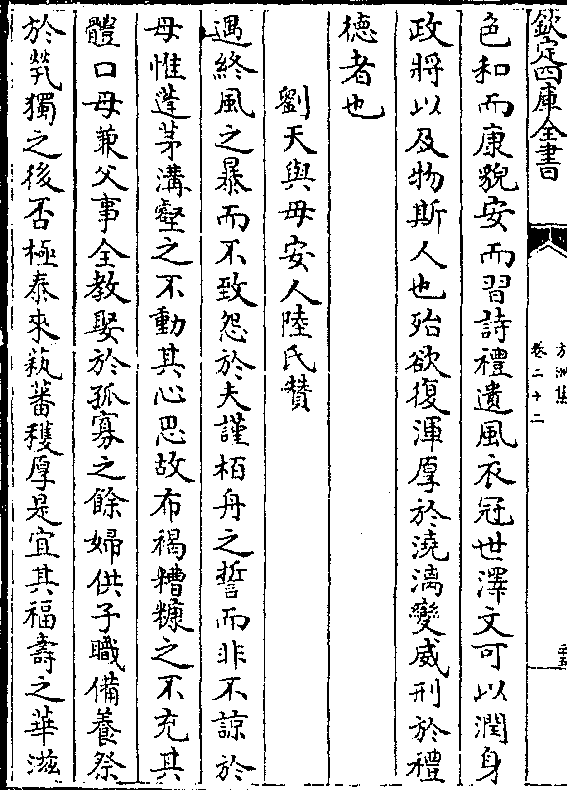 欽定四庫全書
卷二十二
色和而康貌安而習詩禮遺風衣冠世澤文可以潤身
政將以及物斯人也殆欲復渾厚於澆漓變威刑於禮
德者也
劉天與母安人陸氏贊
遇終風之暴而不致怨於夫謹栢舟之誓而非不諒於
母惟蓬茅溝壑之不動其心思故布褐糟糠之不充其
體口母兼父事全教娶於孤寡之餘婦供子職備養祭
於煢獨之後否極泰來蓺蕃穫厚是宜其福壽之華滋